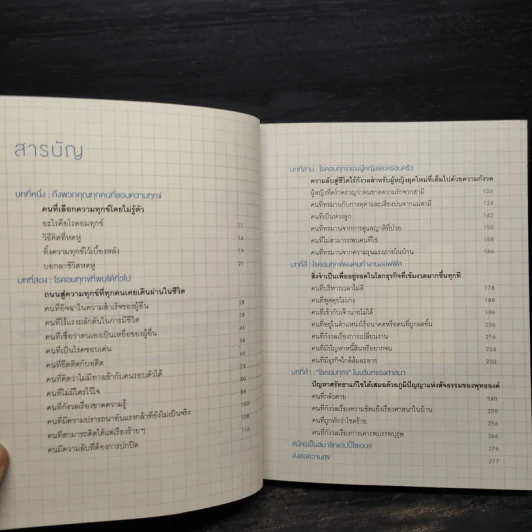 สารบัญ
บทที่หนึ่ง : ถึงพวกคุณทุกคนที่ชอบความทุกข์
คนที่เลือกความทุกข์โดยไม่รู้ตัว
อะไรคือโรคอมทุกข์ 11
วิธีคิดที่หดหู่ 14
ทิ้งความทุกข์ไว้เบื้องหลัง 19
บอกลาชีวิตหดหู่ 21
บทที่สอง : โรคอมทุกข์ที่พบได้ทั่วไป
ถนนสู่ความทุกข์ที่ทุกคนเคยเดินผ่านในชีวิต
คนที่อิจฉาในความสำเร็จของผู้อื่น
คนที่ไร้แรงผลักดันในการมีชีวิต
คนที่เชื่อว่าตนเองเป็นเหยื่อของผู้อื่น
คนที่เป็นโรคชอบแคน
คนที่ยึดติดกับอดีต
คนที่คิดว่าไม่มีทางเข้ากับคนรอบตัวได้
คนที่ไม่มีใครไว้ใจ
คนที่กังวลเรื่องขาดความรู้
คนที่มีความปรารถนาอันแรงกล้าที่ยังไม่เป็นจริง
คนที่สามารถคิดได้แต่เรื่องร้ายๆ
คนมีความลับที่ต้องการปกปิด
บทที่สาม : โรคอมทุกข์ของผู้หญิงและครอบครัว
ความลับสู่ชีวิตไร้กังวลสำหรับผู้หญิงยุคใหม่ที่เต็มไปด้วยความกังวล
ผู้หญิงที่คร่ำครวญว่าตนขาดความรักจากสามี 126
คนที่ทรมานกับการดูด่าและเสียงบ่นจากแม่สามี 134
คนที่เป็นห่วงลูก 142
คนที่ทรมานจากการดูแลญาติที่ป่วย 150
คนที่ไม่สามารถพบคนที่ใช่ 158
คนที่ทรมานจากความรุนแรงภายในบ้าน 166
บทที่สี่ : โรคอมทุกข์ของคนทำงานออฟฟิศ
สิ่งจำเป็นเพื่ออยู่รอดในโลกธุรกิจที่เข้มงวดมากขึ้นทุกที
คนที่บริหารเวลาไม่ดี 178
คนที่พูดคุยไม่เก่ง 188
คนที่เข้ากับเจ้านายไม่ได้ 196
คนที่อยู่ในตำแหน่งไร้อนาคตหรือคนที่ถูกลดขั้น 206
คนที่กังวลเรื่องการเปลี่ยนงาน
คนที่มีปัญหาหนี้สินหรือยากจน
คนที่มีธุรกิจใกล้ล้มละลาย 230
บทที่ห้า : "โรคอมทุกข์" ในบริบทของศาสนา
ปัญหาศรัทธาแก้ไขได้เสมอด้วยภูมิปัญญาแห่งสัจธรรมของพุทธองค์
คนที่กลัวตาย 240
คนที่กังวลเรื่องความขัดแย้งเรื่องศาสนาในบ้าน 250
คนที่ถูกทักว่าโชคร้าย
คนที่กังวลเรื่องการเคารพบรรพบุรุษ
สมัครเป็นสมาชิกแฮปปี้ไซเอนซ์ 276
ส่งต่อความสุข 277